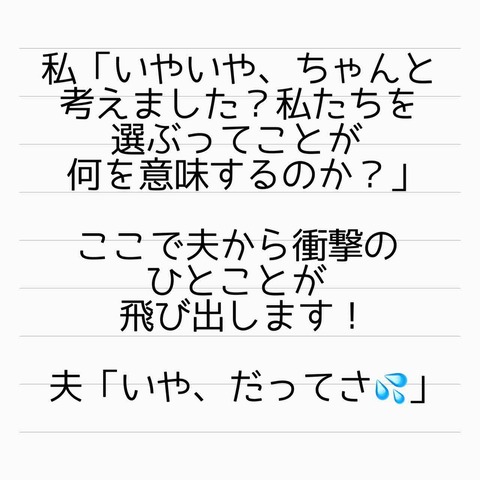 私「いやいや、ちゃんと
考えました？私たちを
選ぶってことが
何を意味するのか？」
ここで夫から衝撃の
ひとことが
飛び出します！
夫「いや、だってさ💦」